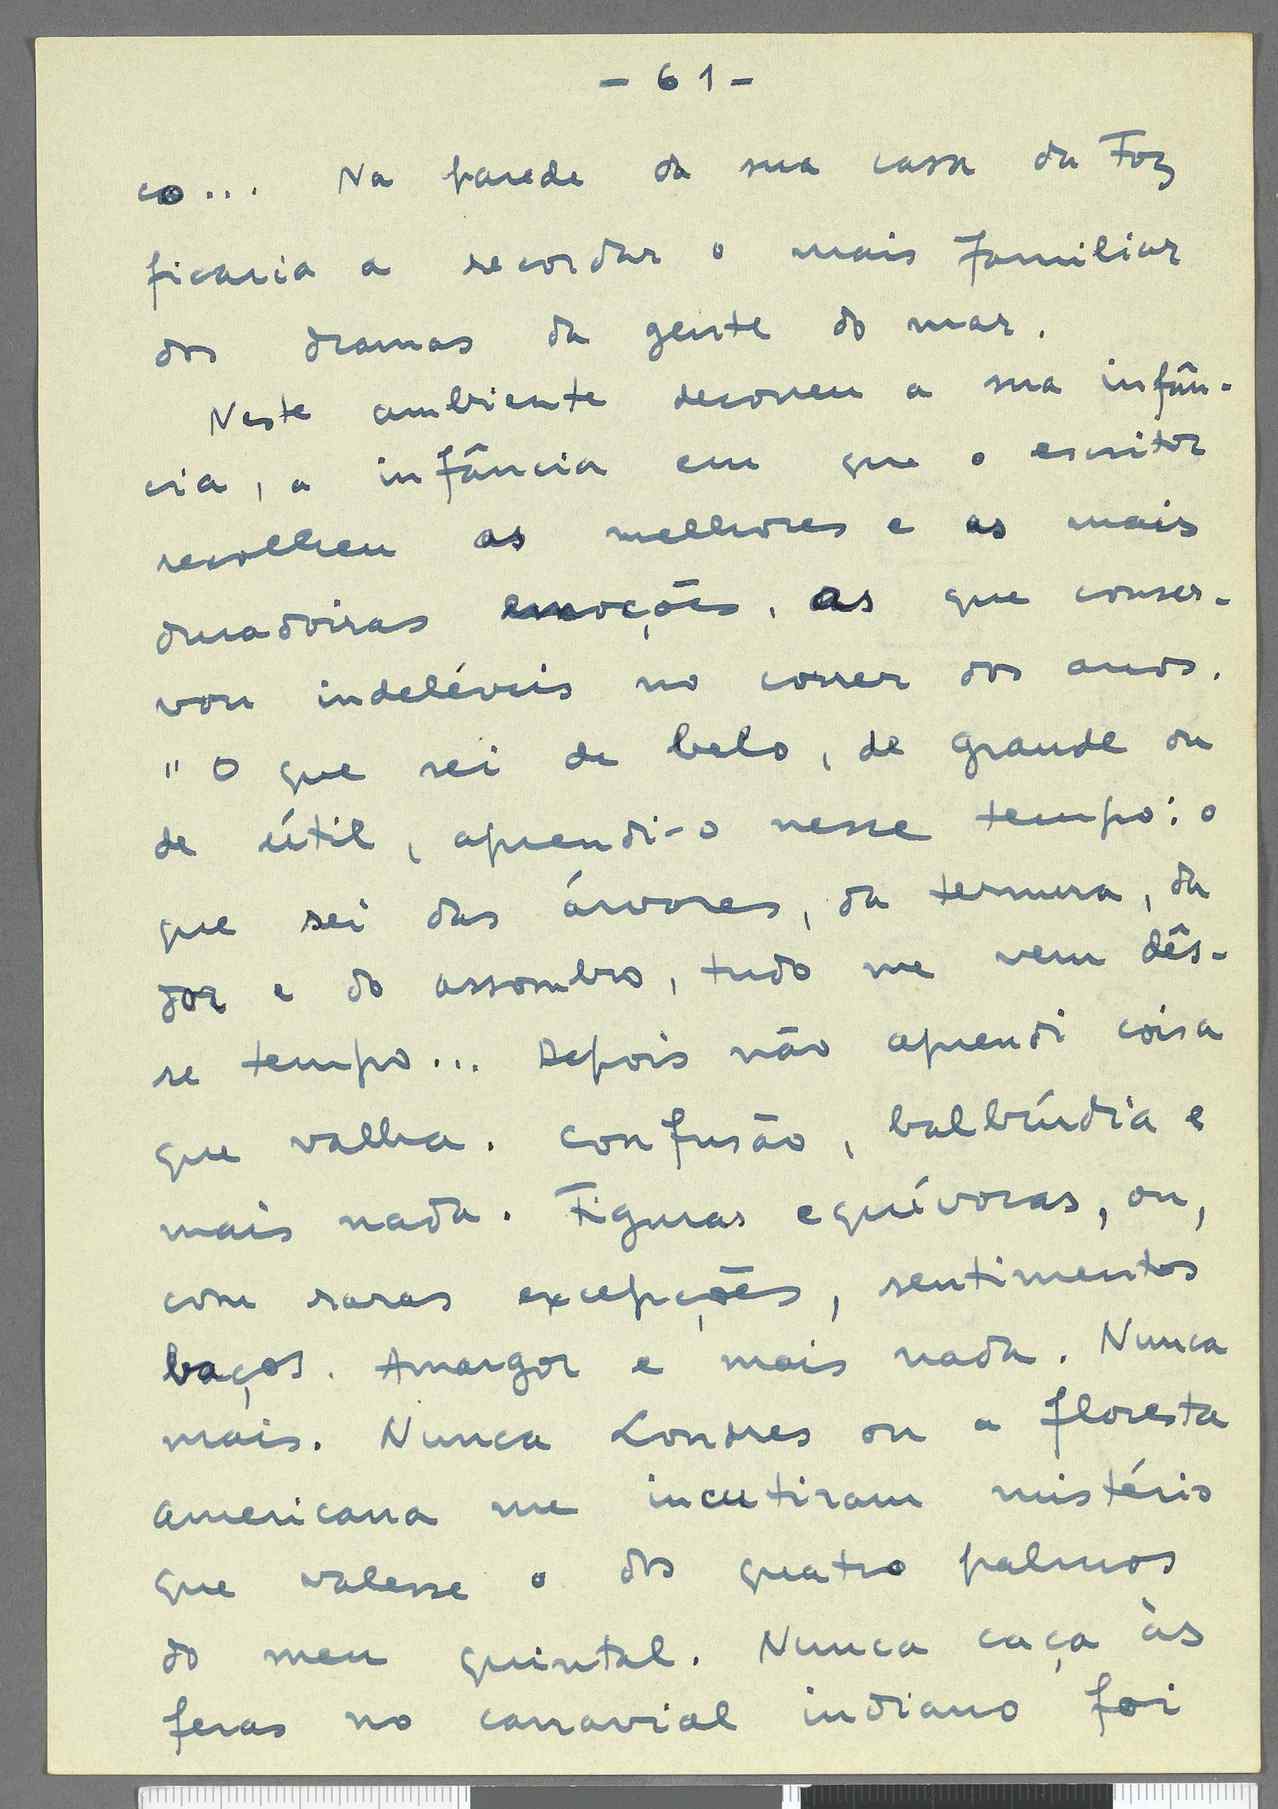 - 61 -
co... Na parede da sua casa da Foz
ficaria a recordar o mais familiar
dos dramas da gente do mar.
Neste ambiente decorreu a sua infân-
cia, a infância em que o escritor
recolheu as melhores e as mais
duradoiras emoções, as que conser-
vou indeléveis no correr dos anos.
"O que sei de belo, de grande ou
de útil, aprendi-o nesse tempo: o
que sei das árvores, da ternura, da
dor e do assombro, tudo me vem dês-
se tempo... Depois não aprendi coisa
que valha. Confusão, balbúrdia e
mais nada. Figuras equívocas, ou,
com raras excepções, sentimentos
baços. Amargor e mais nada. Nunca
mais. Nunca Londres ou a floresta
americana me incutiram mistério
que valesse o dos quatro palmos
do meu quintal. Nunca caça às
feras no canavial indiano foi